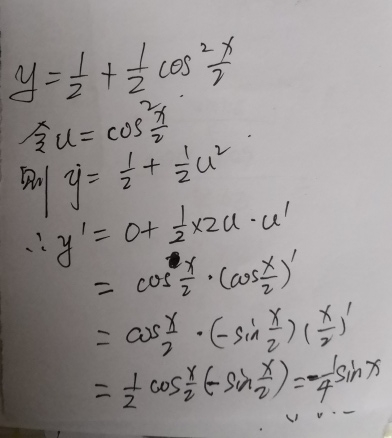 y = 1/2 + 1/2 cos² x/2
令 u = cos² x/2 .
则 y = 1/2 + 1/2 u²
∴ y' = 0 + 1/2 × 2u · u'
= cos x/2 · (cos x/2)'
= cos x/2 · (-sin x/2) (x/2)'
= 1/2 cos x/2 (-sin x/2) = -1/4 sin x